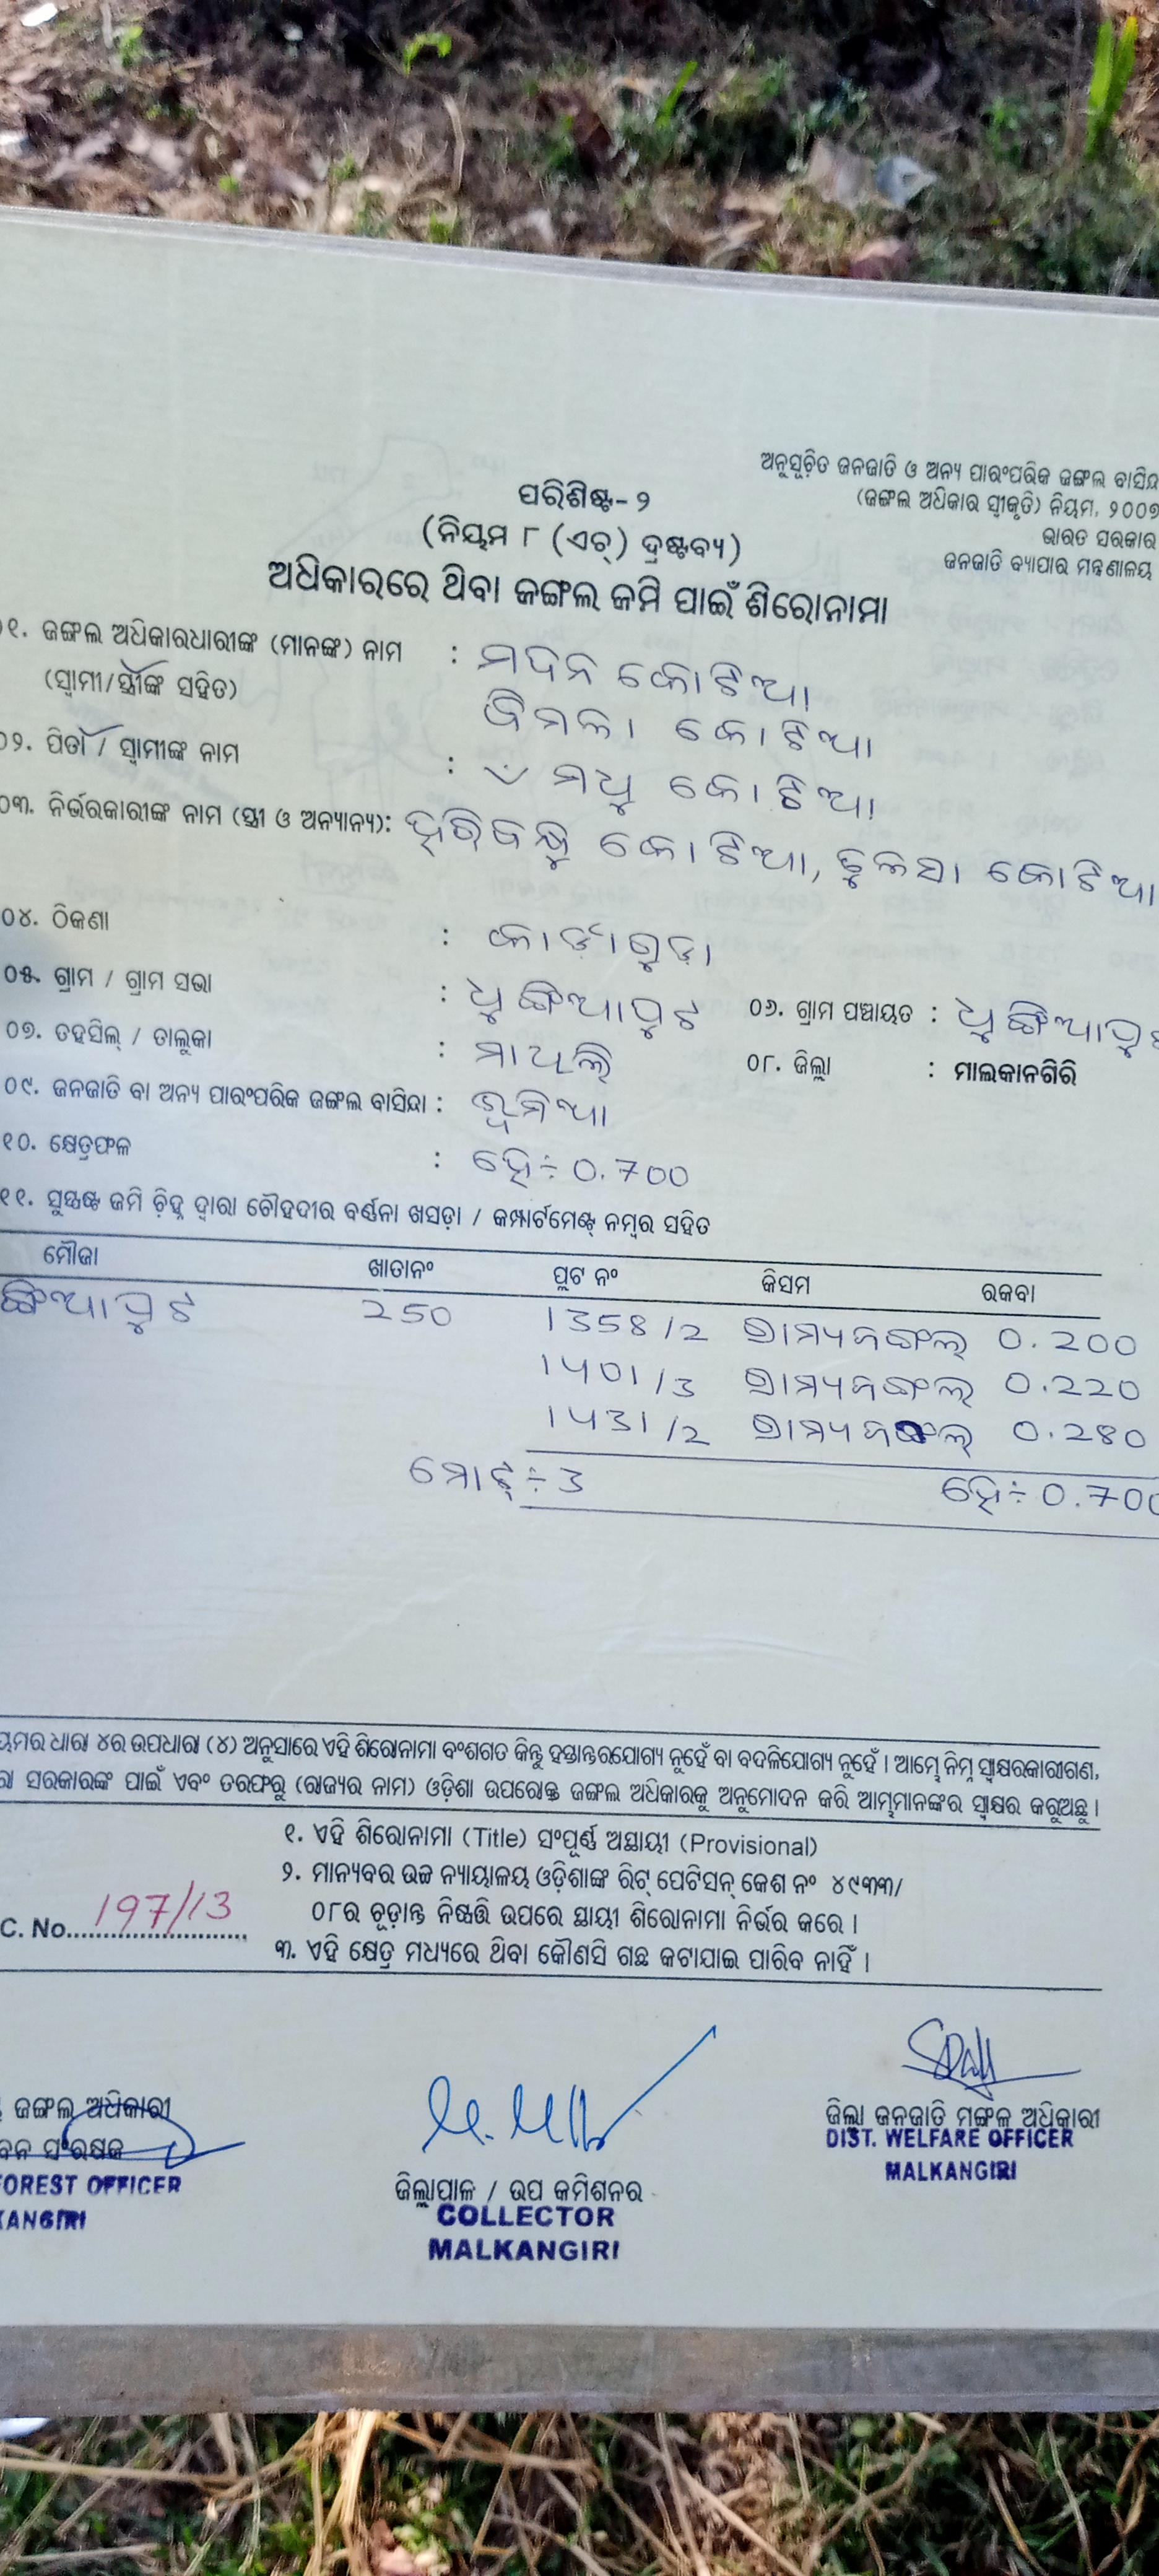 ଅନୁସୂଚିତ ଜନଜାତି ଓ ଅନ୍ୟ ପାରଂପରିକ ଜଙ୍ଗଲ ବାସିନ୍ଦା
(ଜଙ୍ଗଲ ଅଧିକାର ସ୍ୱୀକୃତି) ନିୟମ, ୨୦୦୭
ଭାରତ ସରକାର
ଜନଜାତି ବ୍ୟାପାର ମନ୍ତ୍ରଣାଳୟ
ପରିଶିଷ୍ଟ-୨
(ନିୟମ ୮ (ଏଚ୍) ଦ୍ରଷ୍ଟବ୍ୟ)
ଅଧିକାରରେ ଥିବା ଜଙ୍ଗଲ ଜମି ପାଇଁ ଶିରୋନାମା
୦୧. ଜଙ୍ଗଲ ଅଧିକାରଧାରୀଙ୍କ (ମାନଙ୍କ) ନାମ : ମଦନ କୋଟିଆ
(ସ୍ୱାମୀ/ସ୍ତ୍ରୀଙ୍କ ସହିତ) ବିମଳା କୋଟିଆ
୦୨. ପିତା / ସ୍ୱାମୀଙ୍କ ନାମ : ମଧୁ କୋଟିଆ
୦୩. ନିର୍ଭରକାରୀଙ୍କ ନାମ (ସ୍ତ୍ରୀ ଓ ଅନ୍ୟାନ୍ୟ): ହରିବନ୍ଧୁ କୋଟିଆ, ତୁଳସା କୋଟିଆ
୦୪. ଠିକଣା :
୦୫. ଗ୍ରାମ / ଗ୍ରାମ ସଭା : ଧୁଙ୍ଗିଆପୁଟ ୦୬. ଗ୍ରାମ ପଞ୍ଚାୟତ :
୦୭. ତହସିଲ୍ / ତାଲୁକା : ମାଥିଲି ୦୮. ଜିଲ୍ଲା : ମାଲକାନଗିରି
୦୯. ଜନଜାତି ବା ଅନ୍ୟ ପାରଂପରିକ ଜଙ୍ଗଲ ବାସିନ୍ଦା : ଭୂମିଆ
୧୦. କ୍ଷେତ୍ରଫଳ : ହେ÷ 0.700
୧୧. ସୁସ୍ପଷ୍ଟ ଜମି ଚିହ୍ନ ଦ୍ୱାରା ଚୌହଦୀର ବର୍ଣ୍ଣନା ଖସଡ଼ା / କମ୍ପାର୍ଟମେଣ୍ଟ୍ ନମ୍ବର ସହିତ
ମୌଜା ଖାତାନଂ ପ୍ଲଟ ନଂ କିସମ ରକବା
ଙ୍ଗିଆପୁଟ 250 1358/2 ଗ୍ରାମ୍ୟଜଙ୍ଗଲ୍ 0.200
1401/3 ଗ୍ରାମ୍ୟଜଙ୍ଗଲ୍ 0.220
1431/2 ଗ୍ରାମ୍ୟଜଙ୍ଗଲ୍ 0.280
ମୋଟ୍÷3 ହେ÷0.700
ୟମର ଧାରା ୪ର ଉପଧାରା (୪) ଅନୁସାରେ ଏହି ଶିରୋନାମା ବଂଶଗତ କିନ୍ତୁ ହସ୍ତାନ୍ତରଯୋଗ୍ୟ ନୁହେଁ ବା ବଦଳିଯୋଗ୍ୟ ନୁହେଁ । ଆମ୍ଭେ ନିମ୍ନ ସ୍ୱାକ୍ଷରକାରୀଗଣ,
ସରକାରଙ୍କ ପାଇଁ ଏବଂ ତରଫରୁ (ରାଜ୍ୟର ନାମ) ଓଡ଼ିଶା ଉପରୋକ୍ତ ଜଙ୍ଗଲ ଅଧିକାରକୁ ଅନୁମୋଦନ କରି ଆମ୍ଭମାନଙ୍କର ସ୍ୱାକ୍ଷର କରୁଅଛୁ ।
୧. ଏହି ଶିରୋନାମା (Title) ସଂପୂର୍ଣ୍ଣ ଅସ୍ଥାୟୀ (Provisional)
୨. ମାନ୍ୟବର ଉଚ୍ଚ ନ୍ୟାୟାଳୟ ଓଡ଼ିଶାଙ୍କ ରିଟ୍ ପେଟିସନ୍ କେଶ ନଂ ୪୯୩୩/
୦୮ର ଚୂଡ଼ାନ୍ତ ନିଷ୍ପତ୍ତି ଉପରେ ସ୍ଥାୟୀ ଶିରୋନାମା ନିର୍ଭର କରେ ।
C. No. 197/13
୩. ଏହି କ୍ଷେତ୍ର ମଧ୍ୟରେ ଥିବା କୌଣସି ଗଛ କଟାଯାଇ ପାରିବ ନାହିଁ ।
ଜଙ୍ଗଲ ଅଧିକାରୀ
ବନ ସଂରକ୍ଷକ
FOREST OFFICER
KANGIRI
ଜିଲ୍ଲାପାଳ / ଉପ କମିଶନର
COLLECTOR
MALKANGIRI
ଜିଲ୍ଲା ଜନଜାତି ମଙ୍ଗଳ ଅଧିକାରୀ
DIST. WELFARE OFFICER
MALKANGIRI